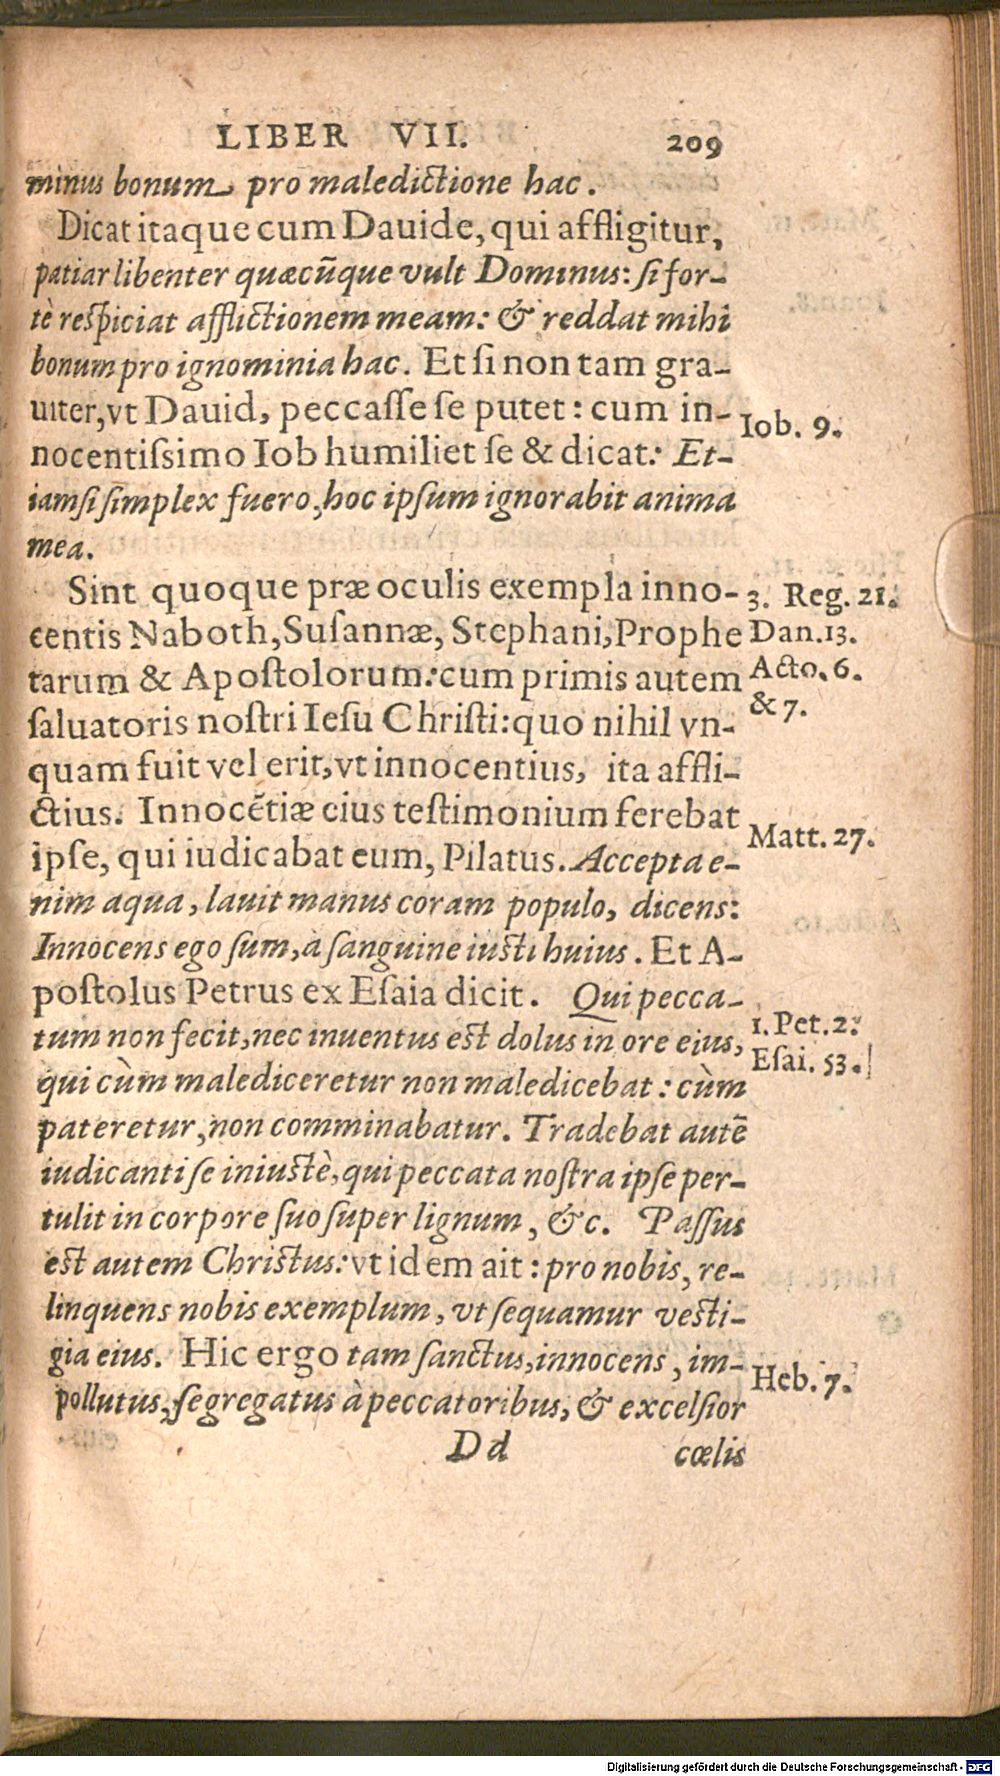 LIBER VII. 209
minus bonum pro maledictione hac.
Dicat itaque cum Dauide, qui affligitur,
patiar libenter quæcũque vult Dominus: si for-
tè respiciat afflictionem meam: & reddat mihi
bonum pro ignominia hac. Et si non tam gra-
uiter, vt Dauid, peccasse se putet: cum in-
nocentissimo Iob humiliet se & dicat: Et-
iamsi simplex fuero, hoc ipsum ignorabit anima
mea.
Iob. 9.
Sint quoque præ oculis exempla inno-
centis Naboth, Susannæ, Stephani, Prophe
tarum & Apostolorum: cum primis autem
saluatoris nostri Iesu Christi: quo nihil vn-
quam fuit vel erit, vt innocentius, ita affli-
ctius. Innocẽtiæ eius testimonium ferebat
ipse, qui iudicabat eum, Pilatus. Accepta e-
nim aqua, lauit manus coram populo, dicens:
Innocens ego sum, a sanguine iusti huius. Et A-
postolus Petrus ex Esaia dicit. Qui pecca-
tum non fecit, nec inuentus est dolus in ore eius,
qui cùm malediceretur non maledicebat: cùm
pateretur, non comminabatur. Tradebat autẽ
iudicanti se iniustè, qui peccata nostra ipse per-
tulit in corpore suo super lignum, &c. Passus
est autem Christus: vt idem ait: pro nobis, re-
linquens nobis exemplum, vt sequamur vesti-
gia eius. Hic ergo tam sanctus, innocens, im-
pollutus, segregatus à peccatoribus, & excelsior
3. Reg. 21.
Dan. 13.
Acto. 6.
& 7.
Matt. 27.
1. Pet. 2.
Esai. 53.
Heb. 7.
Dd cœlis
Digitalisierung gefördert durch die Deutsche Forschungsgemeinschaft - DFG